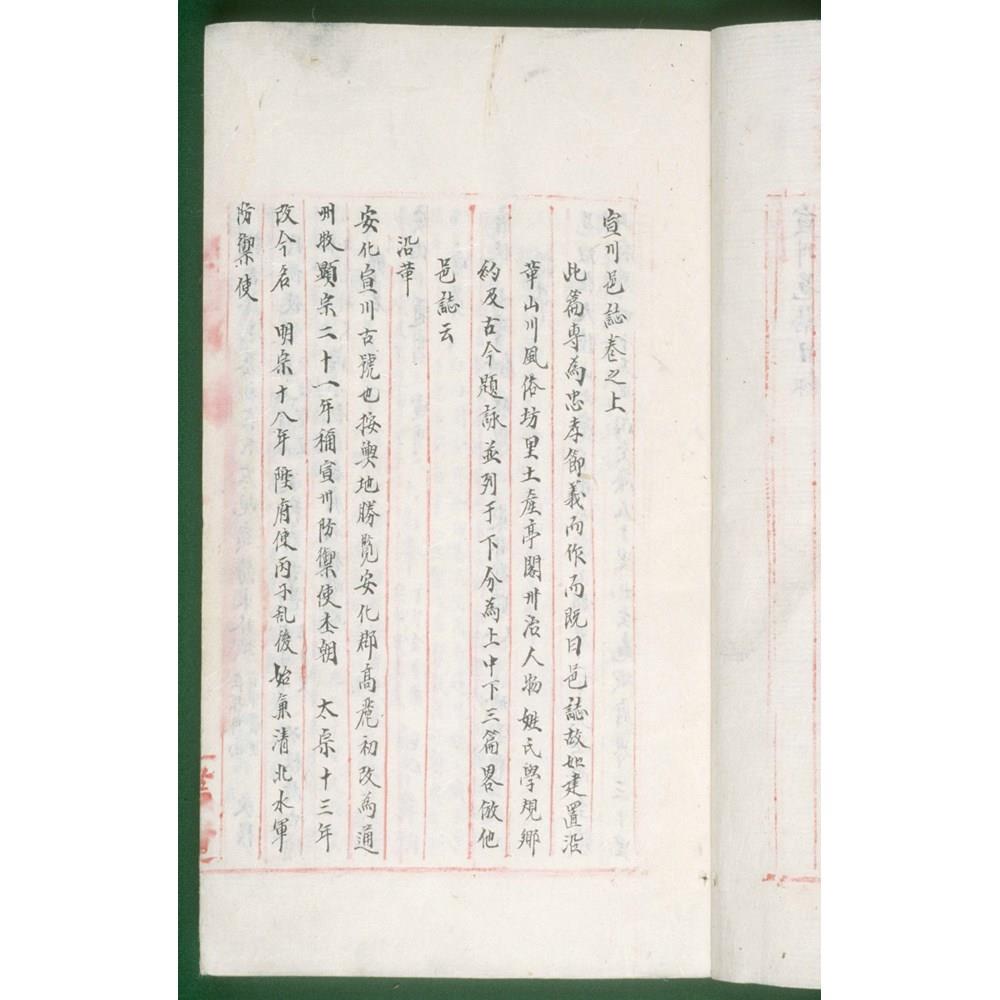 宣川邑誌卷之上
此篇專為忠孝節義而作而既曰邑誌故如建置沿
革山川風俗坊里土産亭閣州治人物姓氏學規鄉
約及古今題詠並列于下分為上中下三篇畧倣他
邑誌云
沿革
安化宣川古號也按輿地勝覽安化郡高麗初改為通
州牧顯宗二十一年稱宣川防禦使本朝 太宗十三年
改今名 明宗十八年陞府使丙子乱後始兼清北水軍
防禦使